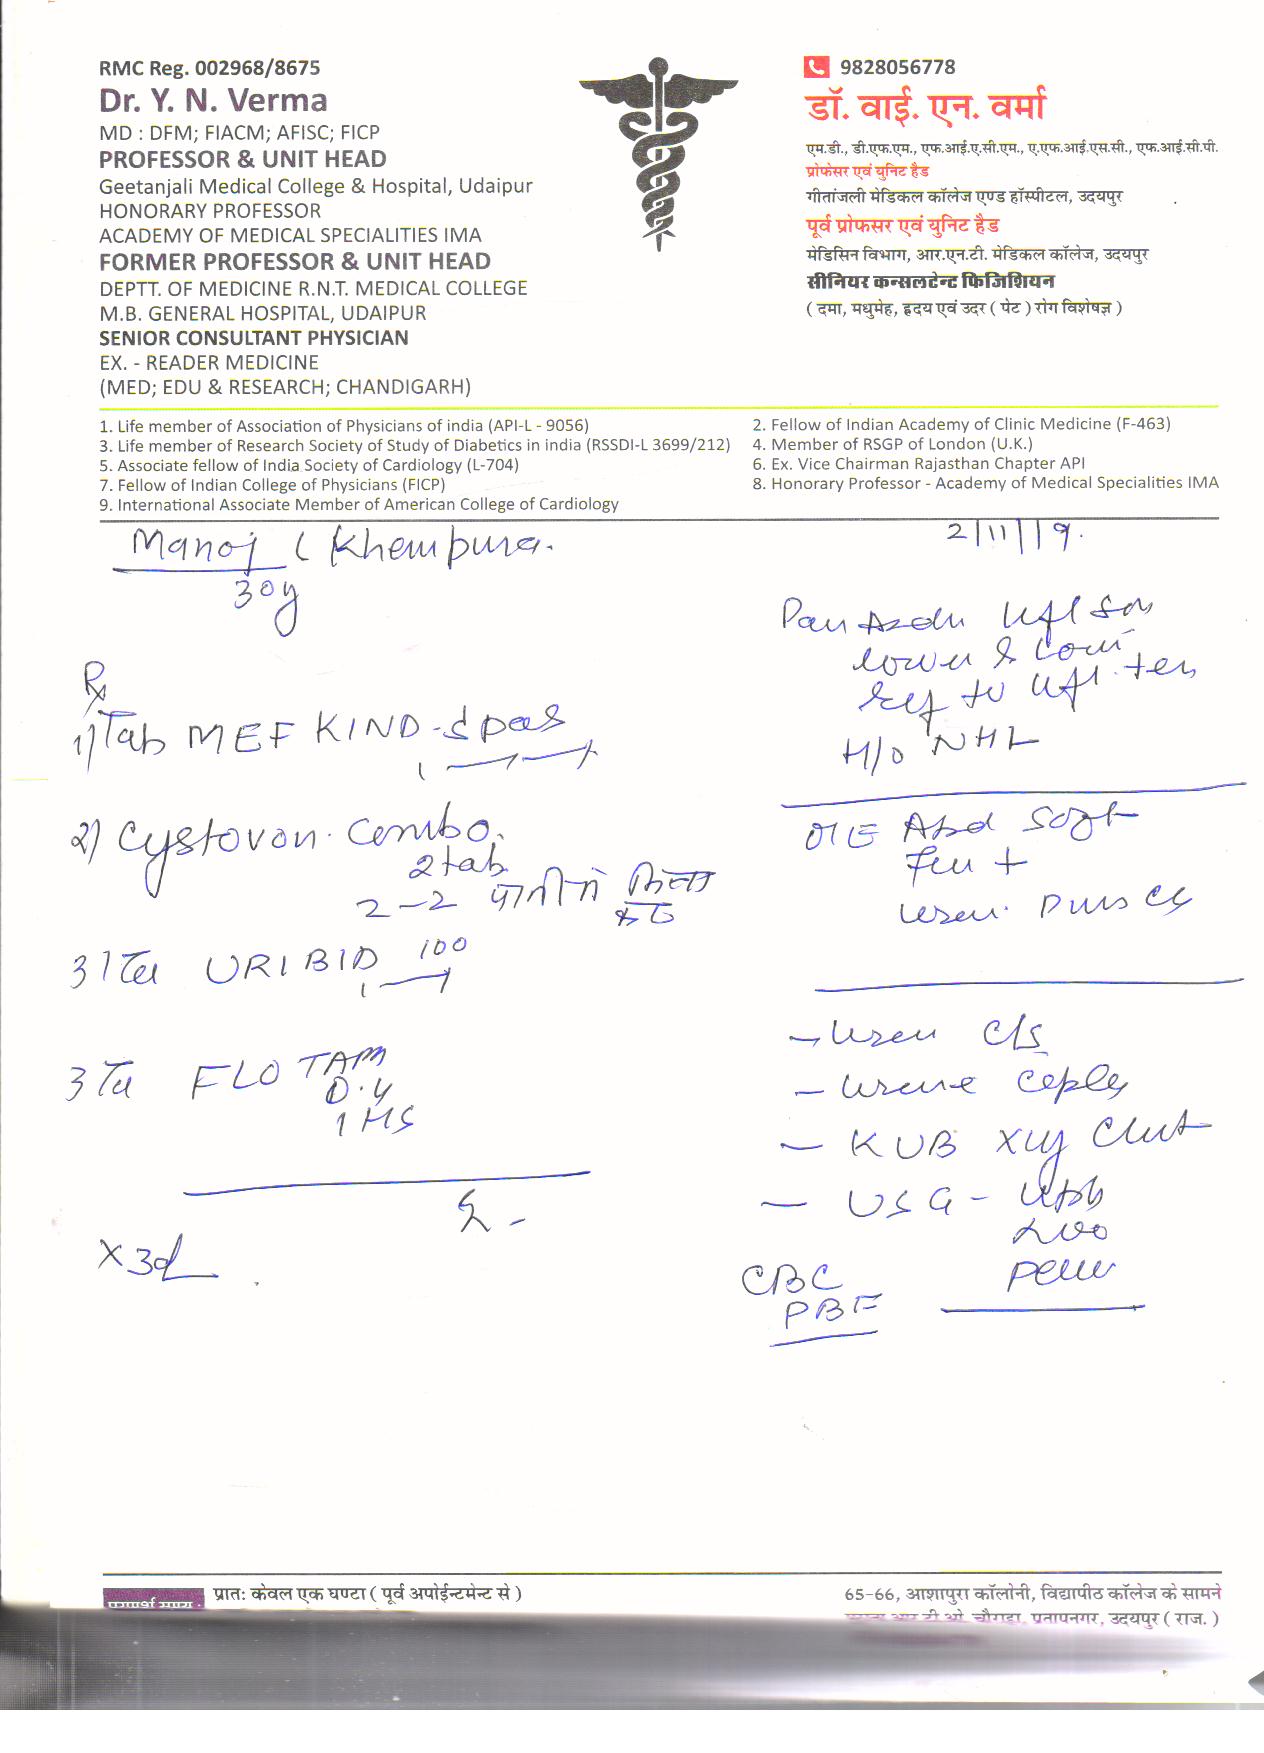 RMC Reg. 002968/8675
Dr. Y. N. Verma
MD : DFM; FIACM; AFISC; FICP
PROFESSOR & UNIT HEAD
Geetanjali Medical College & Hospital, Udaipur
HONORARY PROFESSOR
ACADEMY OF MEDICAL SPECIALITIES IMA
FORMER PROFESSOR & UNIT HEAD
DEPTT. OF MEDICINE R.N.T. MEDICAL COLLEGE
M.B. GENERAL HOSPITAL, UDAIPUR
SENIOR CONSULTANT PHYSICIAN
EX. - READER MEDICINE
(MED; EDU & RESEARCH; CHANDIGARH)
9828056778
डॉ. वाई. एन. वर्मा
एम.डी., डी.एफ.एम., एफ.आई.ए.सी.एम., ए.एफ.आई.एस.सी., एफ.आई.सी.पी.
प्रोफेसर एवं युनिट हैड
गीतांजली मेडिकल कॉलेज एण्ड हॉस्पीटल, उदयपुर
पूर्व प्रोफसर एवं युनिट हैड
मेडिसिन विभाग, आर.एन.टी. मेडिकल कॉलेज, उदयपुर
सीनियर कन्सलटेन्ट फिजिशियन
( दमा, मधुमेह, हृदय एवं उदर ( पेट ) रोग विशेषज्ञ )
1. Life member of Association of Physicians of india (API-L - 9056)
2. Fellow of Indian Academy of Clinic Medicine (F-463)
3. Life member of Research Society of Study of Diabetics in india (RSSDI-L 3699/212)
4. Member of RSGP of London (U.K.)
5. Associate fellow of India Society of Cardiology (L-704)
6. Ex. Vice Chairman Rajasthan Chapter API
7. Fellow of Indian College of Physicians (FICP)
8. Honorary Professor - Academy of Medical Specialities IMA
9. International Associate Member of American College of Cardiology
Manoj ( Khempura.
2/11/19.
30y
Rx
1) Tab MEF KIND-Spas
1
2) Cystovon. Combo.
2 tab
2-2 पानी में
3) Ta URIBID 100
1
3 Ta FLOTAM
0.4
1 HS
x 3d
H/O NHL
O/E Abd Soft
- C/S
- KUB
- USG -
CBC
PBF
प्रातः केवल एक घण्टा ( पूर्व अपोईन्टमेन्ट से )
65-66, आशापुरा कॉलोनी, विद्यापीठ कॉलेज के सामने
चौराहा, प्रतापनगर, उदयपुर ( राज. )